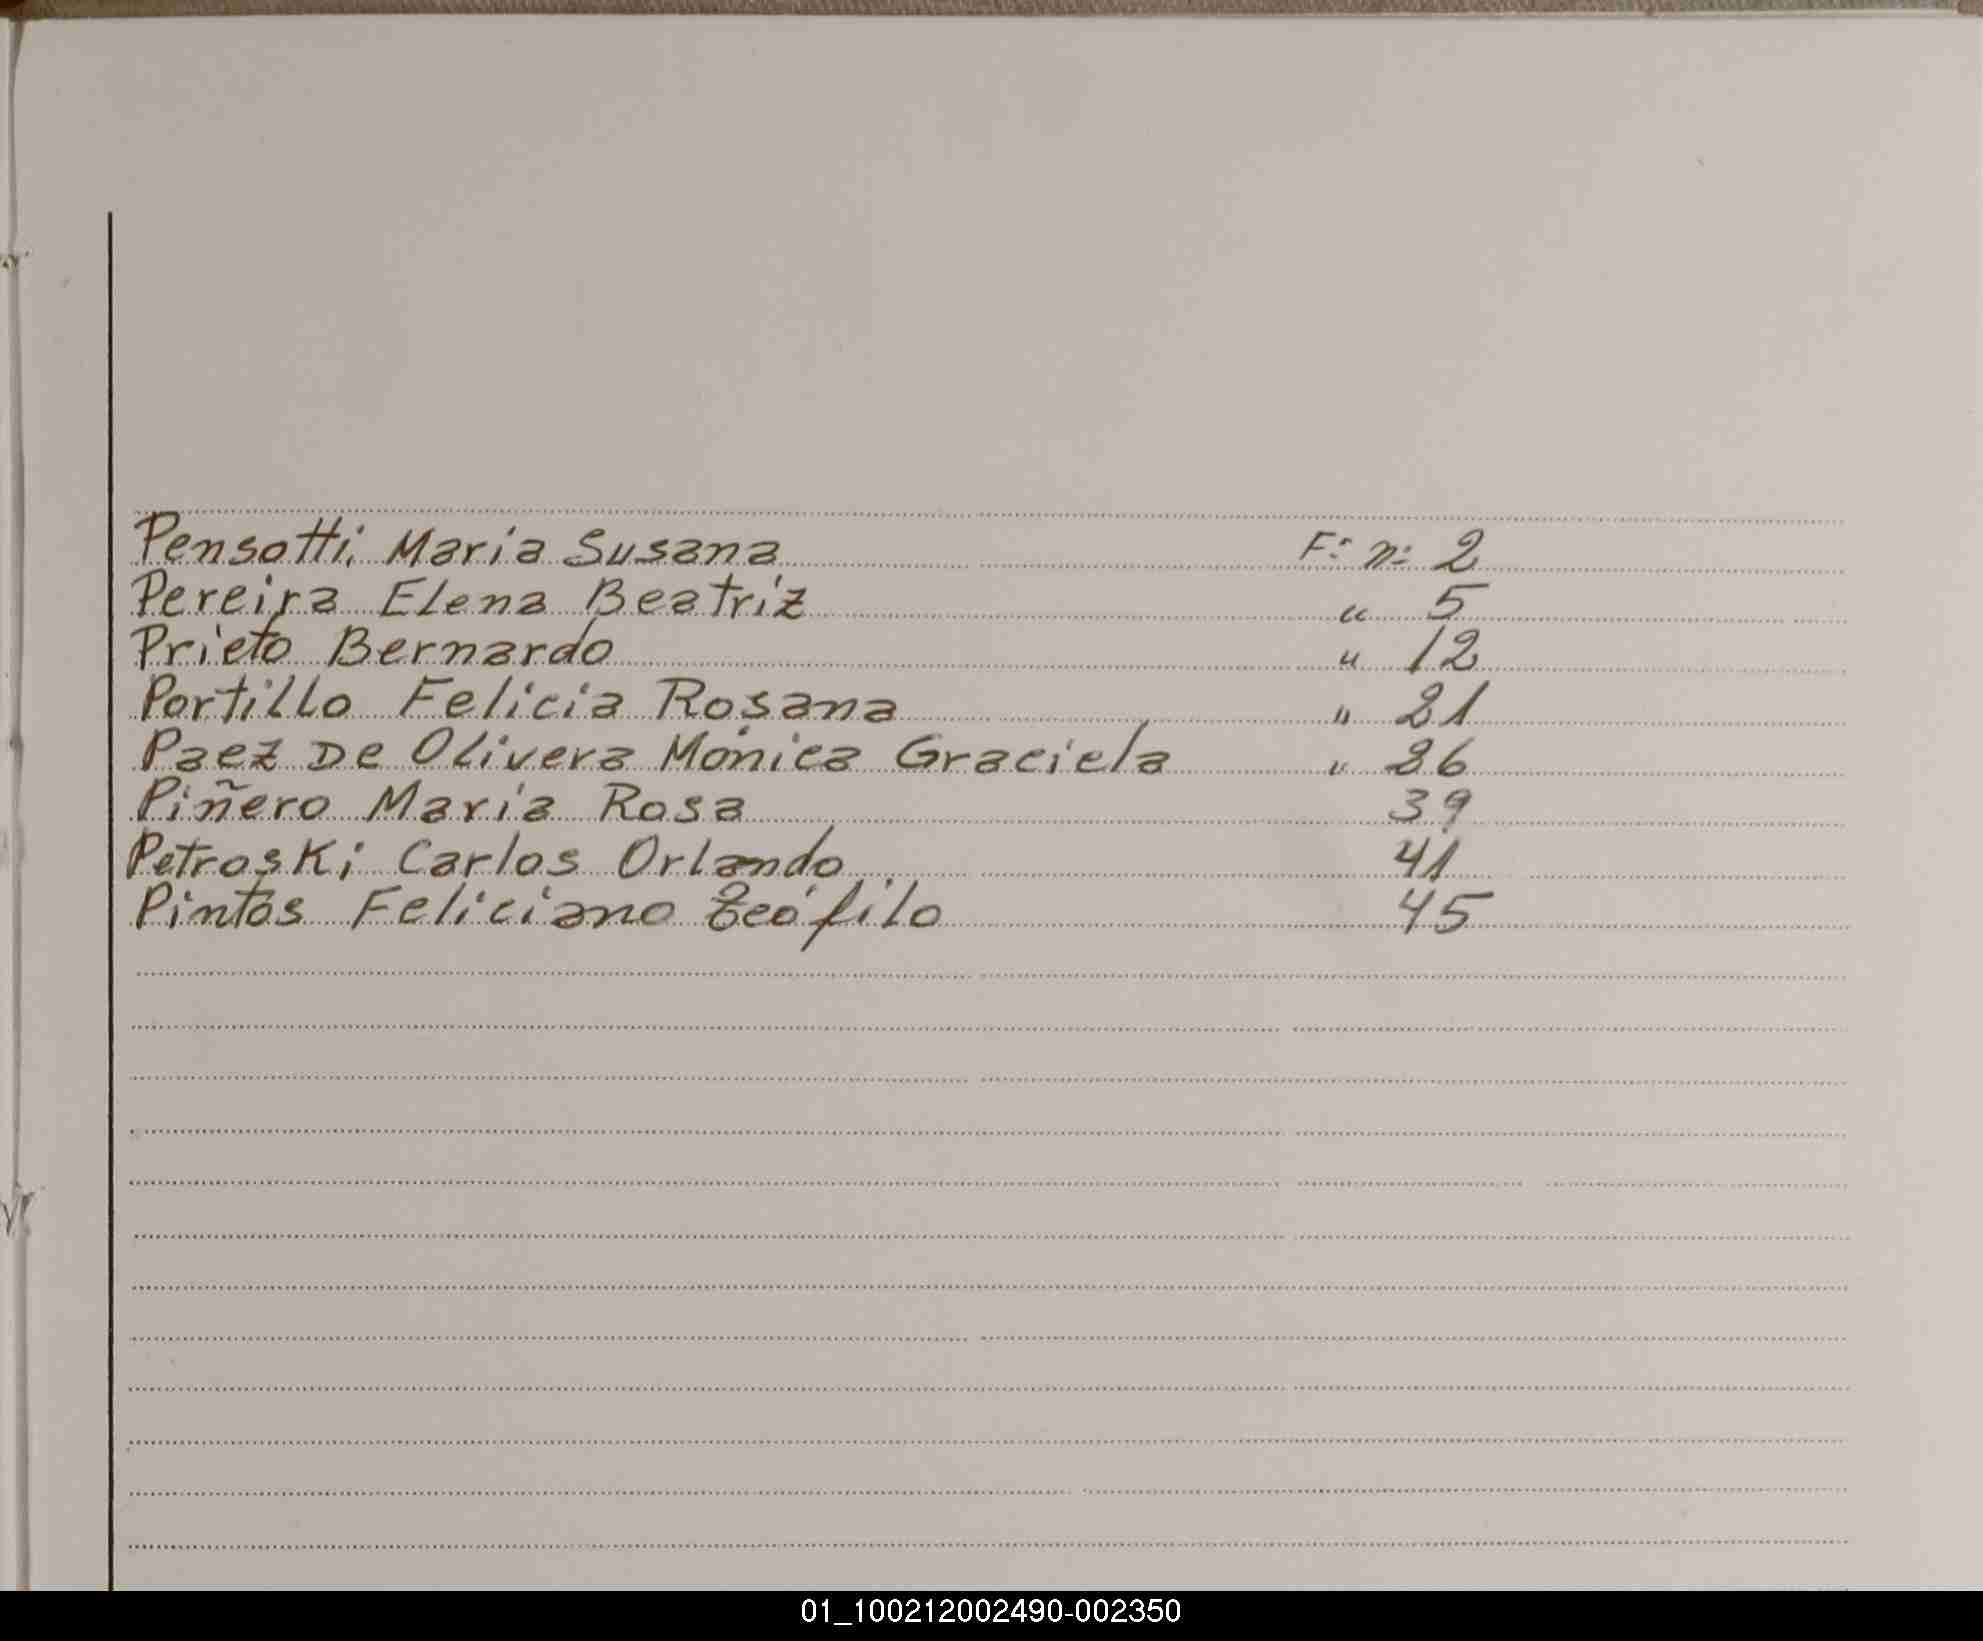 Pensotti, Maria Susana F: n: 2
Pereira Elena Beatriz " 5
Prieto Bernardo " 12
Portillo Felicia Rosana " 21
Paez De Olivera Mónica Graciela " 26
Piñero Maria Rosa 39
Petroski Carlos Orlando 41
Pintos Feliciano Teófilo 45
01_100212002490-002350